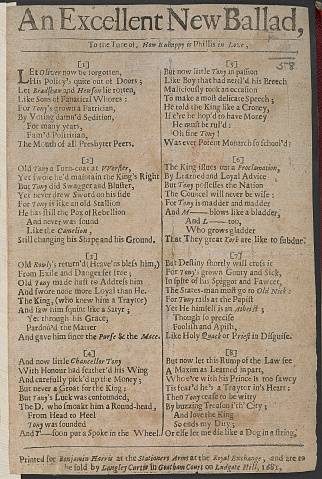 An Excellent New Ballad,
To the Tune of, How Unhappy is Phillis in Love,
58
[1]
Let Oliver now be forgotten,
His Policy's quite out of Doors;
Let Bradshaw and Hewson lie rotten,
Like Sons of Fanatical Whores:
For Tony's grown a Patrician,
By Voting damn'd Sedition,
For many years,
Fam'd Politician,
The Mouth of all Presbyter Peers.
[2]
Old Tony a Turn-coat at Worster,
Yet swore he'd maintain the King's Right
But Tony did Swagger and Bluster,
Yet never drew Sword on his side
For Tony is like an old Stallion
He has still the Pox of Rebellion
And never was found
Like the Camelion,
Still changing his Shape and his Ground.
[3]
Old Rowly's return'd (Heav'ns bless him,)
From Exile and Danger set free;
Old Tony made hast to Address him
And swore none more Loyal than He.
The King, (who knew him a Traytor)
And saw him squint like a Satyr;
Yet through his Grace,
Pardon'd the Matter
And gave him since the Purse & the Mace.
[4]
And now little Chancellor Tony
With Honour had feather'd his Wing
And carefully pick'd up the Money;
But never a Groat for the King:
But Tony's Luck was confounded,
The D, who smoakt him a Round-head,
From Head to Heel
Tony was sounded
And T—soon put a Spoke in the Wheel.
[5]
But now little Tony in passion
Like Boy that had nettl'd his Breech
Maliciously took an occasion
To make a most delicate Speech;
He told the King like a Croney,
If e're he hop'd to have Money
He must be rul'd:
Oh fine Tony!
Was ever Potent Monarch so school'd?
[6]
The King issues out a Proclamation,
By Learned and Loyal Advice
But Tony possesses the Nation
The Council will never be wise:
For Tony is madder and madder
And M—— blows like a bladder,
And L—— too,
Who grows gladder
That They great York are like to subdue.
[7]
But Destiny shortly will cross it
For Tony's grown Gouty and Sick,
In spite of his Spiggot and Fawcet,
The States-man must go to Old Nick:
For Tony rails at the Papist
Yet He himself is an Atheist;
Though so precise
Foolish and Apish,
Like Holy Quack or Priest in Disguise.
[8]
But now let this Rump of the Law see
A Maxim as Learned in part,
Whoe're with his Prince is too sawcy
Tis fear'd he's a Traytor in's Heart:
Then Tony cease to be witty
By buzzing Treason i'th' City;
And love the King
So ends my Ditty;
Or else let me die like a Dog in a string,
Printed for Benjamin Harris at the Stationers Arms at the Royal Exchange, and are to
be sold by Langley Curtis in Goatham Court on Ludgate Hill, 1681,